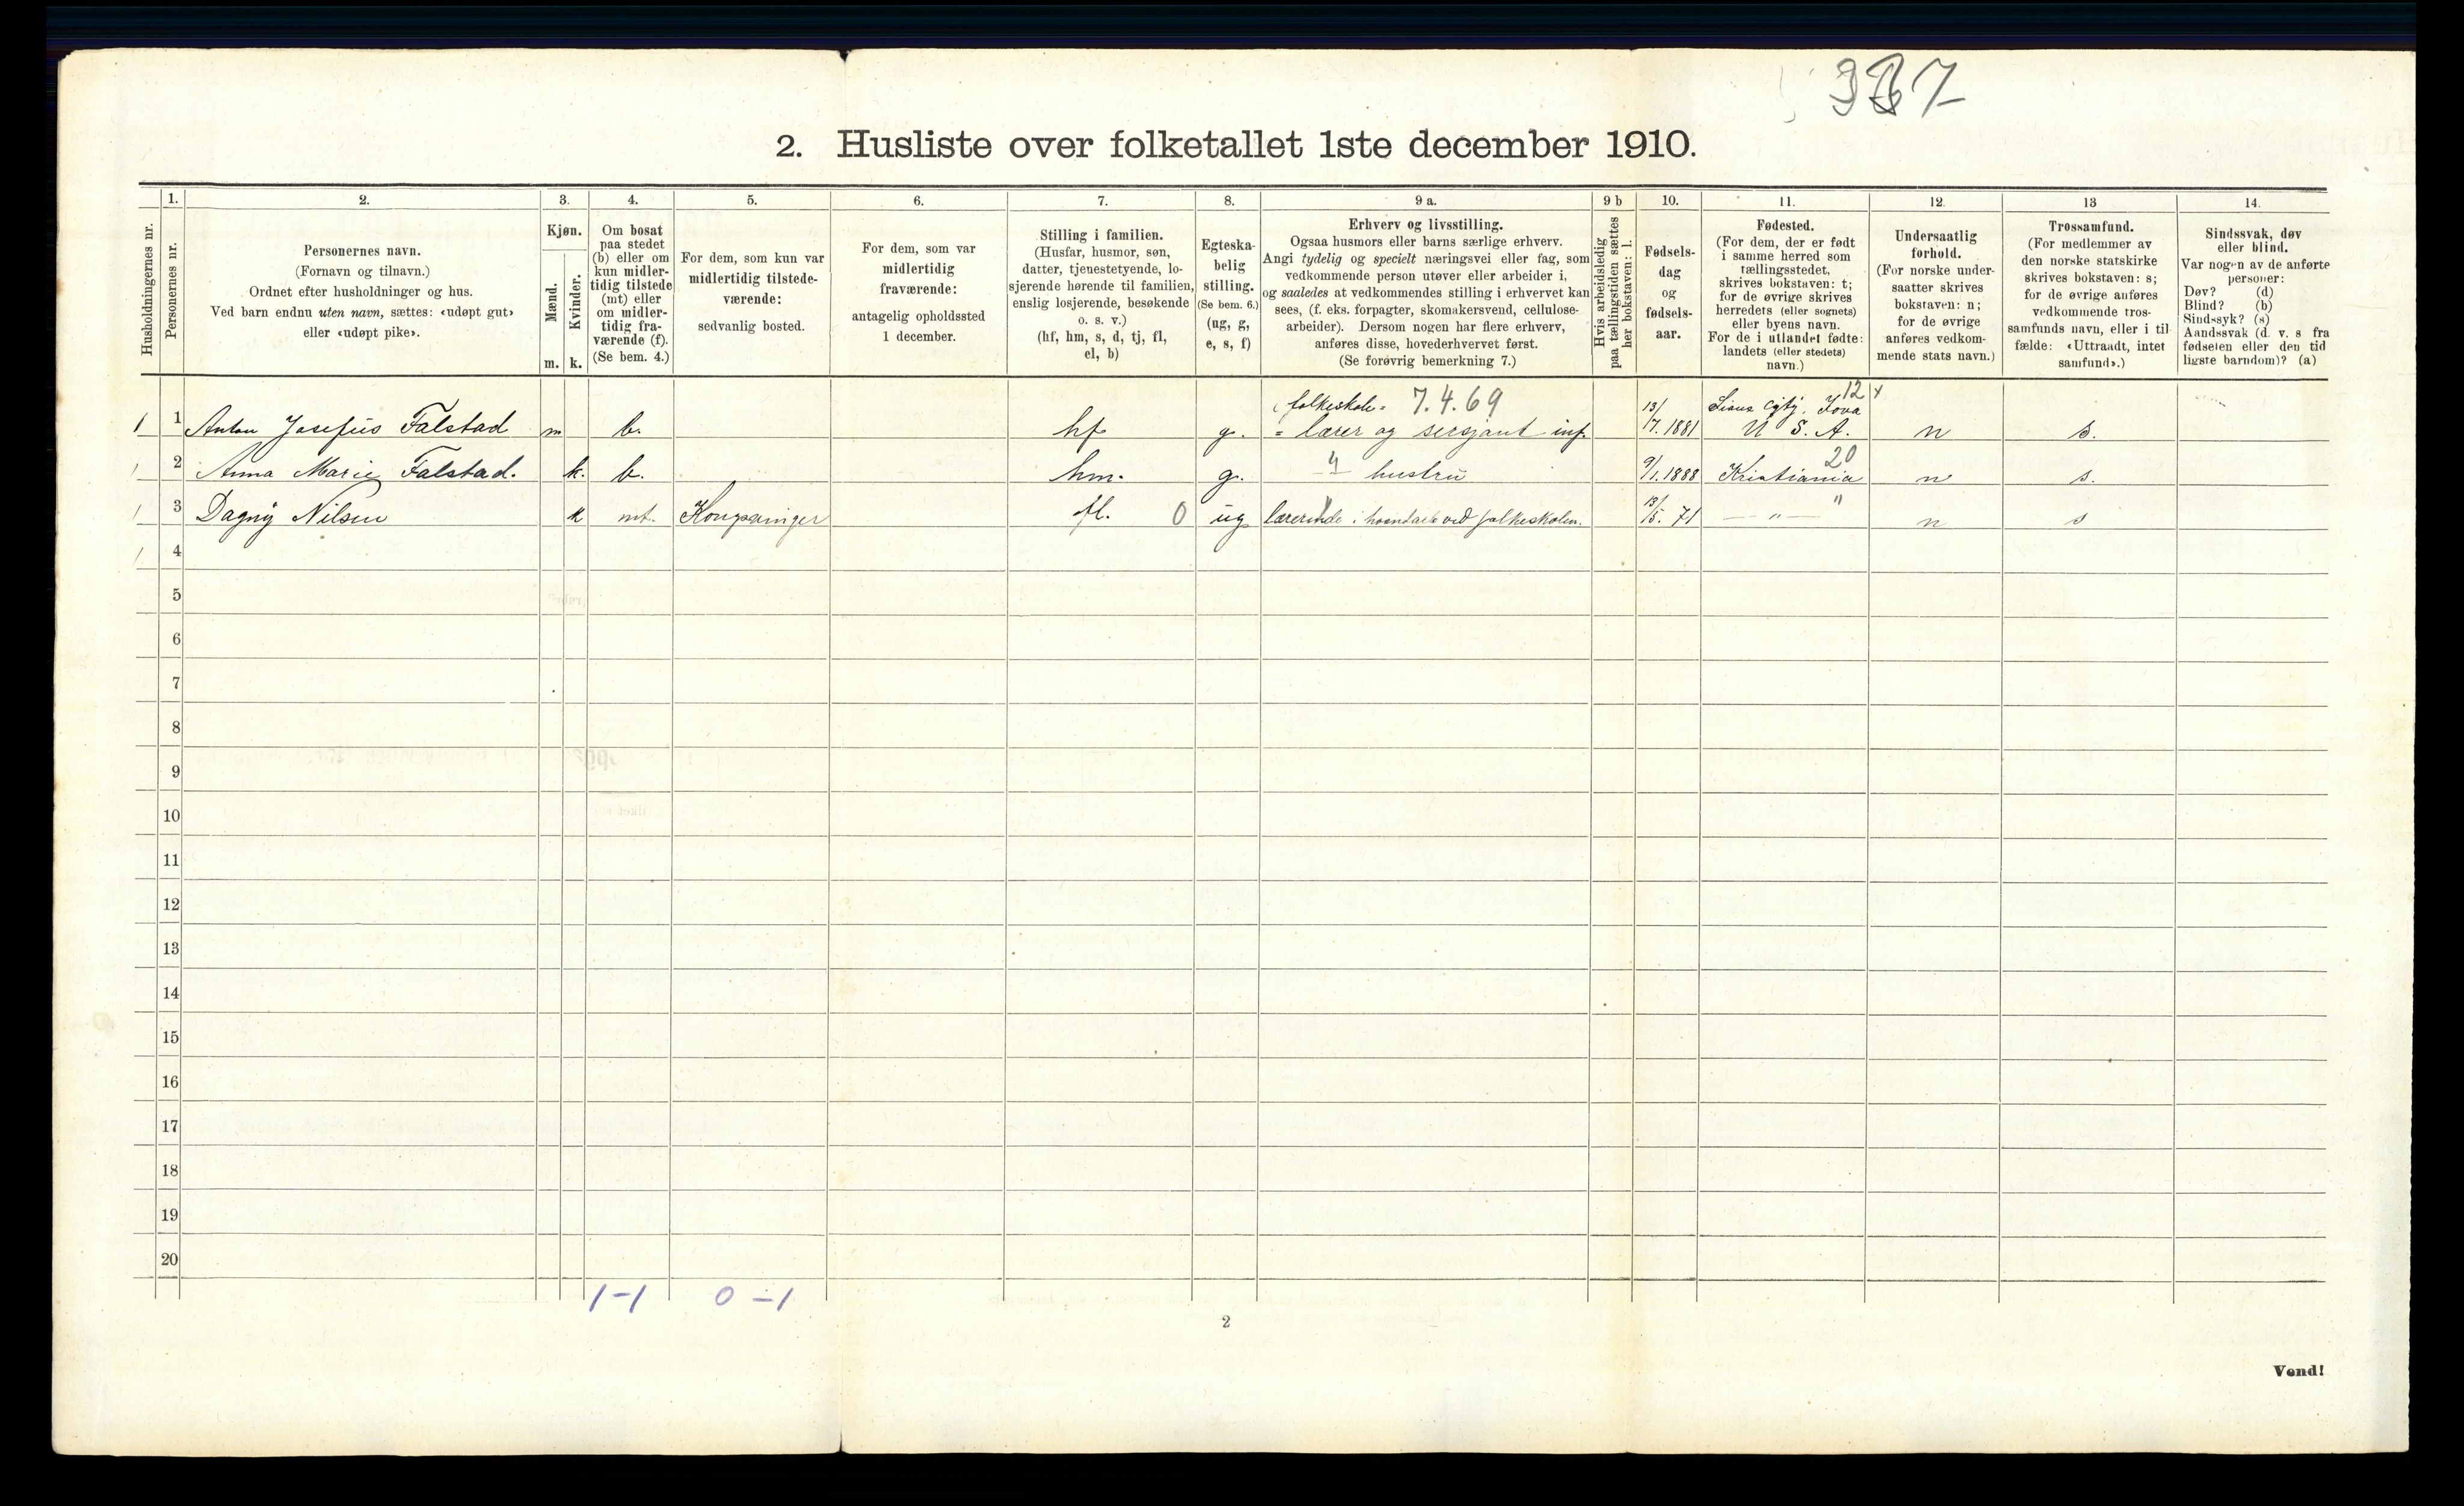 7
2. Husliste over folketallet 1ste december 1910.
Husholdningernes nr.
1. Personernes nr.
2.
Personernes navn.
(Fornavn og tilnavn.)
Ordnet efter husholdninger og hus.
Ved barn endnu uten navn, sættes: «udøpt gut»
eller «udøpt pike».
3.
Kjøn.
Mænd. Kvinder.
m. k.
4.
Om bosat
paa stedet
(b) eller om
kun midler-
tidig tilstede
(mt) eller
om midler-
tidig fra-
værende (f).
(Se bem. 4.)
5.
For dem, som kun var
midlertidig tilstede-
værende:
sedvanlig bosted.
6.
For dem, som var
midlertidig
fraværende:
antagelig opholdssted
1 december.
7.
Stilling i familien.
(Husfar, husmor, søn,
datter, tjenestetyende, lo-
sjerende hørende til familien,
enslig losjerende, besøkende
o. s. v.)
(hf, hm, s, d, tj, fl,
el, b)
8.
Egteska-
belig
stilling.
(Se bem. 6.)
(ug, g,
e, s, f)
9 a.
Erhverv og livsstilling.
Ogsaa husmors eller barns særlige erhverv.
Angi tydelig og specielt næringsvei eller fag, som
vedkommende person utøver eller arbeider i,
og saaledes at vedkommendes stilling i erhvervet kan
sees, (f. eks. forpagter, skomakersvend, cellulose-
arbeider). Dersom nogen har flere erhverv,
anføres disse, hovederhvervet først.
(Se forøvrig bemerkning 7.)
9 b
Hvis arbeidsledig
paa tællingstiden sættes
her bokstaven: l.
10.
Fødsels-
dag
og
fødsels-
aar.
11.
Fødested.
(For dem, der er født
i samme herred som
tællingsstedet,
skrives bokstaven: t;
for de øvrige skrives
herredets (eller sognets)
eller byens navn.
For de i utlandet fødte:
landets (eller stedets)
navn.)
12.
Undersaatlig
forhold.
(For norske under-
saatter skrives
bokstaven: n;
for de øvrige
anføres vedkom-
mende stats navn.)
13
Trossamfund.
(For medlemmer av
den norske statskirke
skrives bokstaven: s;
for de øvrige anføres
vedkommende tros-
samfunds navn, eller i til
fælde: «Uttraadt, intet
samfund».)
14.
Sindssvak, døv
eller blind.
Var nogen av de anførte
personer:
Døv? (d)
Blind? (b)
Sindssyk? (s)
Aandssvak (d. v. s fra
fødselen eller den tid
ligste barndom)? (a)
folkeskole= 7.4.69 12
1 1 Anton Josefus Falstad m b. hf g. = lærer og sersjant inf. 13/7. 1881 Cyty, Iova U S. A. n s.
2 Anna Marie Falstad. k. b. hm. g. " hustru 9/1. 1888 Kristiania 20 n s.
3 Dagny Nilsen k mt. Kongsvinger fl. 0 ug lærerinde i ved folkeskolen. 13/5. 71 — " — " n s
4
5
6
7
8
9
10
11
12
13
14
15
16
17
18
19
20
1-1 0-1
2
Vend!